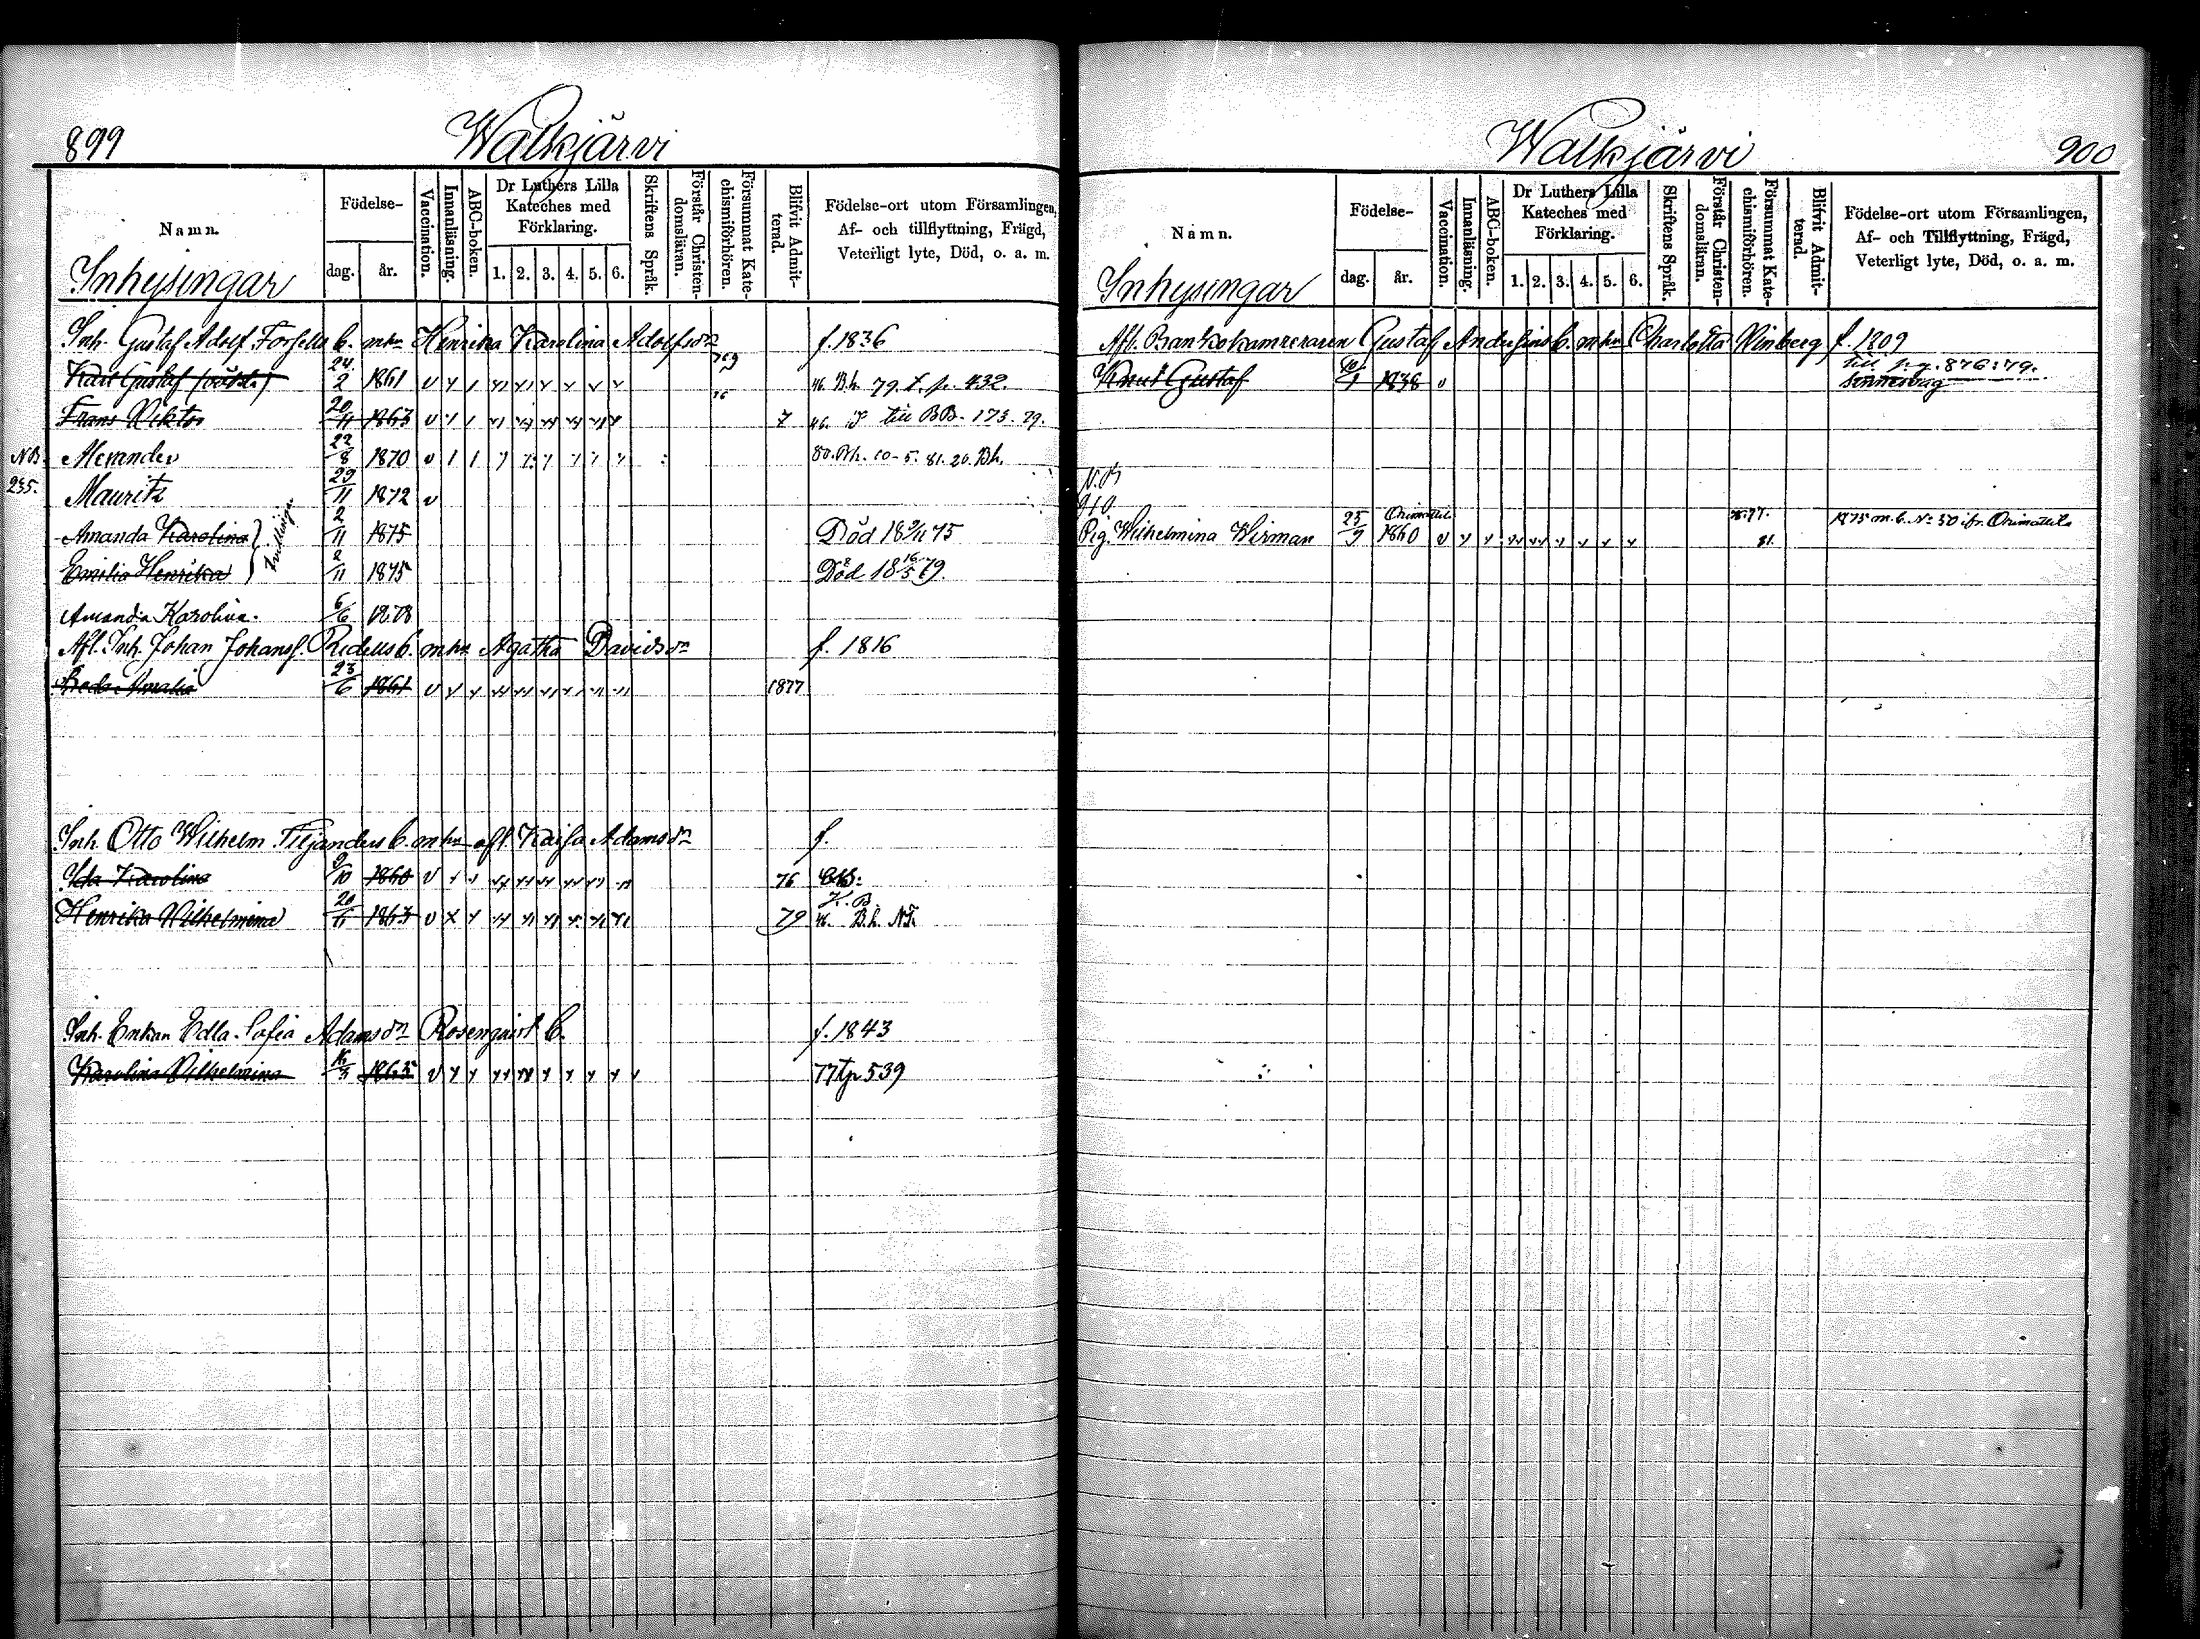 899 Walkjärvi
Namn. Födelse- dag. år. Vaccination. Innanläsning. ABC-boken. Dr Luthers Lilla Kateches med Förklaring. 1. 2. 3. 4. 5. 6. Skriftens Språk. Förstår Christendomsläran. Försummat Katechismiförhören. Blifvit Admitterad. Födelse-ort utom Församlingen, Af- och tillflyttning, Frägd, Veterligt lyte, Död, o. a. m.
Inhysingar
Inh. Gustaf Adolf Forsells b. m hu Henrika Karolina Adolfsdr f. 1836
Karl Gustaf 24/2 1861 v 46. Bh. 79. t. p. 432.
Frans Viktor 20/11 1863 v 7 46. till BB. 173. 79.
NB. Alexander 22/8 1870 v 80. Bh. 10-5. 81. 20. Bh.
235. Mauritz 29/11 1872 v
Amanda Karolina 2/11 1875 Död 18 9/11 75
Emilia Henrika 2/11 1875 Död 18 16/5 79.
Tvillingar
Amanda Karolina. 6/6 1878
Afl. Inh. Johan Johanss. Ridells b. m hu Agatha Davidsdr f. 1816
Amalia 23/6 1861 v 1877
Inh. Otto Wilhelm Filjanders b. m hu afl. Kaisa Adamsdr f.
Ida Karolina 9/10 1860 v 76
Henrika Wilhelmina 20/11 1863 v 79 46. B.h. NF.
Inh. Enkan Edla Sofia Adamsdr Rosenqvist b. f. 1843
Karolina Vilhelmina 16/3 1863 v 77 tp 539
Walkjärvi 900
Namn. Födelse- dag. år. Vaccination. Innanläsning. ABC-boken. Dr Luthers Lilla Kateches med Förklaring. 1. 2. 3. 4. 5. 6. Skriftens Språk. Förstår Christendomsläran. Försummat Katechismiförhören. Blifvit Admitterad. Födelse-ort utom Församlingen, Af- och Tillflyttning, Frägd, Veterligt lyte, Död, o. a. m.
Inhysingar
Afl. Bankokamreraren Gustaf Andersins b. m hu Charlotta Winberg f. 1809
Knut Gustaf 1838 v till p. g. 876: 79.
N.B
910
Pig. Wilhelmina Wirman 25/9 1860 Orimattila v 77. 81. 1875 m. b. No 50 ifr. Orimattila